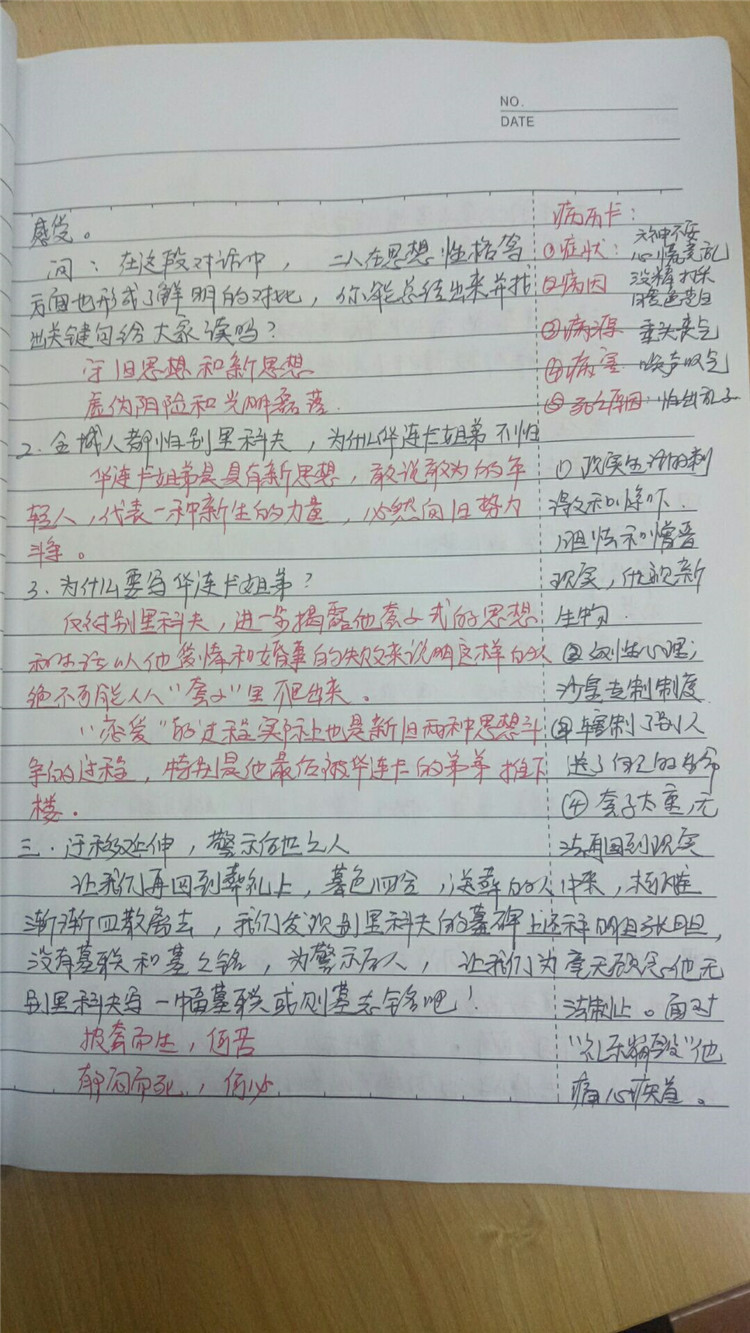 NO.
DATE
感受。
问：在这段对话中，二人在思想性格等
方面也形成了鲜明的对比，你能总结出来并找
出关键句给大家读吗？
守旧思想和新思想
虚伪阴险和光明磊落
2.全城人都怕别里科夫，为什么华连卡姐弟不怕
华连卡姐弟是具有新思想，敢说敢为的年
轻人，代表一种新生的力量，必然向旧势力
斗争。
3.为什么要写华连卡姐弟？
反衬别里科夫，进一步揭露他套子式的思想
和生活以他爱情和婚事的失败来说明这样的人
绝不可能从"套子"里爬出来。
"恋爱"的过程实际上也是新旧两种思想斗
争的过程，特别是他最后被华连卡的弟弟推下
楼.
三.迁移延伸，警示后世之人
让我们再回到葬礼上，暮色四合，送葬的人
渐渐四散离去，我们发现别里科夫的墓碑上
没有墓联和墓志铭，为警示后人，让我们为
别里科夫写一幅墓联或则墓志铭吧！
披套而生，何苦
郁闷而死，何必
病历卡：
①症状：
六神不安
心慌意乱
没精打采
脸色苍白
②病因
③病源 垂头丧气
④病害 唉声叹气
⑤死亡原因 怕出乱子
① 现实生活的刺
激和惊吓.
胆怯和憎恶
现实，仇视新
生物.
② 奴性心理；
沙皇专制制度
③ 辖制了别人
送了自己的性命
④ 套子太重，无
法再回到现实
中来，极难